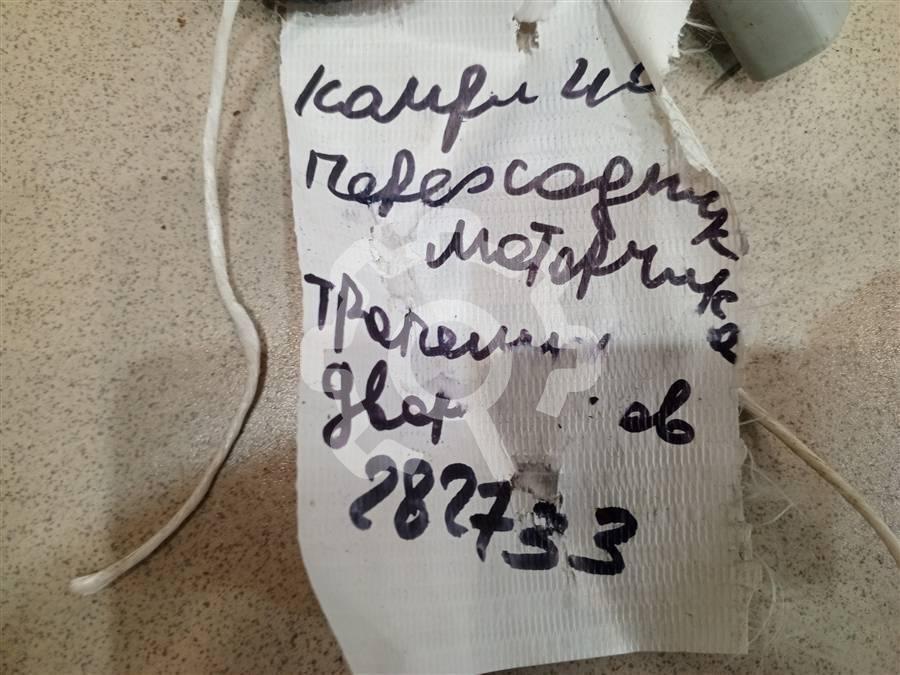 Камри 40
переходник
моторчика
трапеции
двор ов
282733